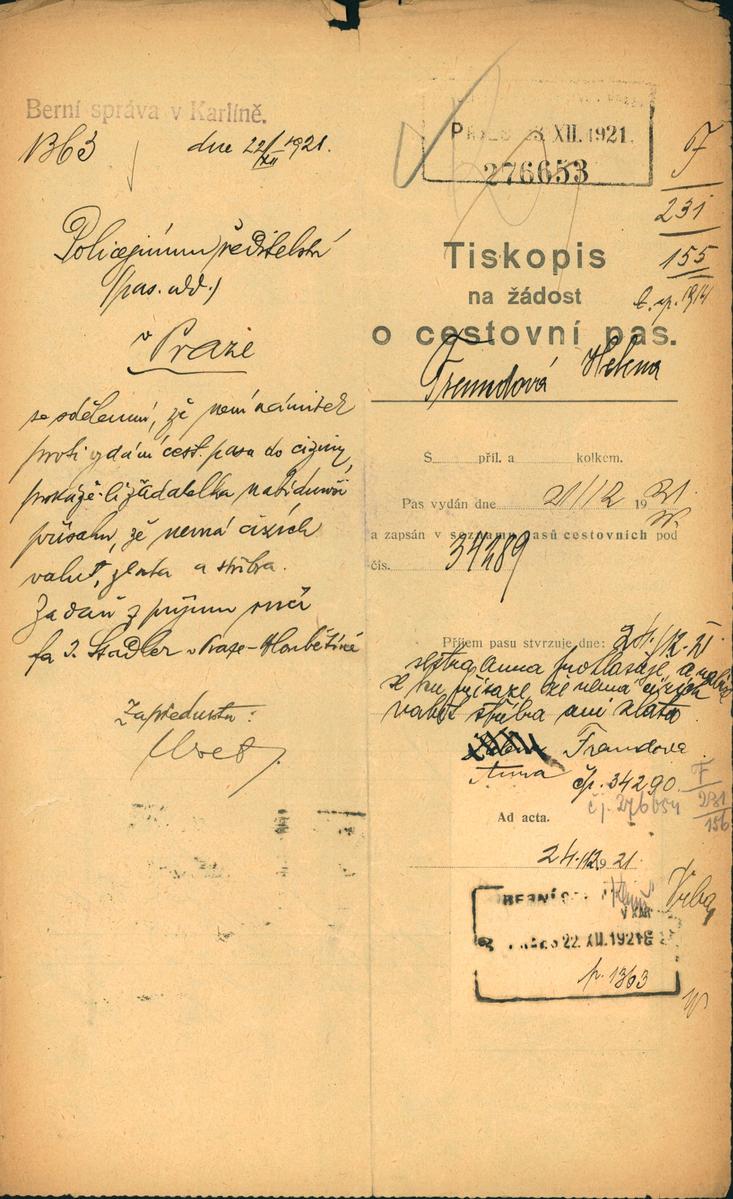 Berní správa v Karlíně.
1363 dne 22/XII 1921.
Policejnímu ředitelství
(pas. odd.)
v Praze
se sdělením, že není námitek
proti vydání cest. pasu do ciziny,
prokáže-li žadatelka nabídnutí
přísahy, že nemá cizích
valut, zlata a stříbra.
Za daň z příjmu ručí
fa J. Stadler v Praze-
Za přednostu:
XII. 1921.
276653
F
231
155
1914
Tiskopis
na žádost
o cestovní pas.
Freundová Helena
S příl. a kolkem.
Pas vydán dne 21/12 1921
a zapsán v seznamu pasů cestovních pod
čís. 34289
Příjem pasu stvrzuje dne: 24./12.21
sestra Anna prohlašuje a nabízí
se ku přísaze že nemá cizích
valut stříbra ani zlata
Freundova
Anna čp. 34290
čj. 276654
F
231
156
Ad acta.
24.12.1921
BERNÍ
V KAR
22. XII. 1921
1363